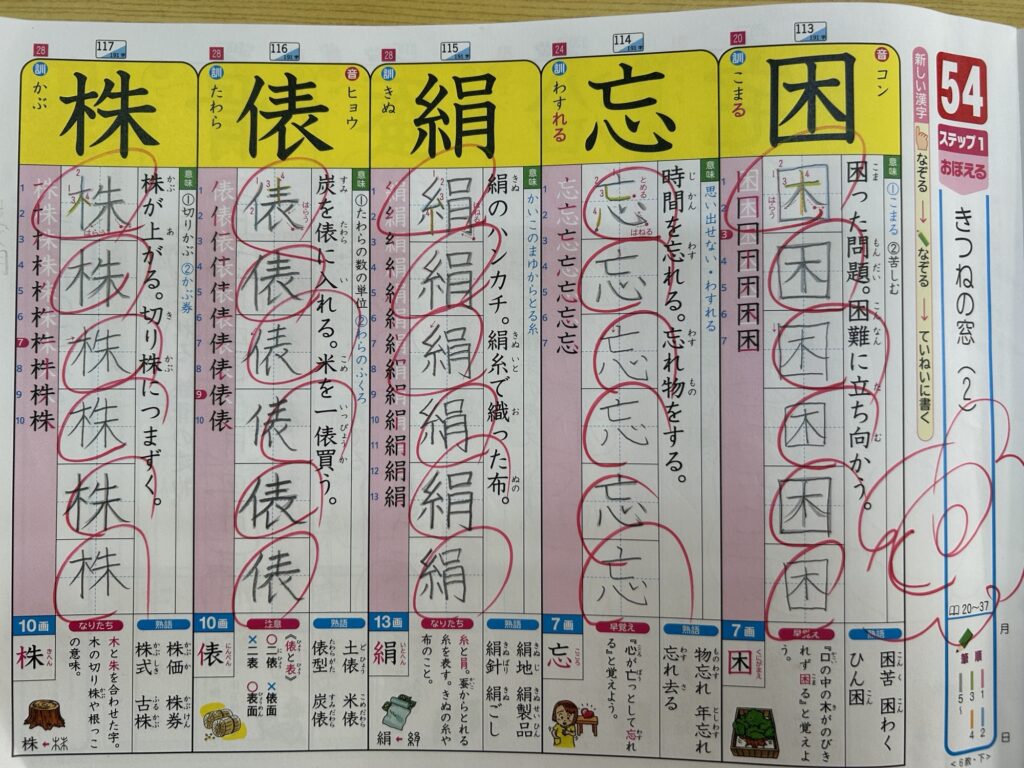 54
ステップ1
おぼえる
きつねの窓（2）
20〜37
月
日
筆順
1 2
3 4
5〜
＜6教・下＞
新しい漢字
なぞる → なぞる → ていねいに書く
113
191字
20
音 コン
訓 こまる
困
意味 ①こまる ②苦しむ
困った問題。困難に立ち向かう。
困
困
困
困
困
困
7画
困
くにがまえ
熟語
困苦 困わく
ひん困
早覚え
『口の中の木がのびきれず困る』と覚えよう。
114
191字
24
訓 わすれる
忘
意味 思い出せない・わすれる
時間を忘れる。忘れ物をする。
とめる
はねる
忘
忘
忘
忘
忘
忘
7画
忘
こころ
熟語
物忘れ 年忘れ
忘れ去る
早覚え
『心が亡っとして忘れる』と覚えよう。
115
191字
28
訓 きぬ
絹
意味 かいこのまゆからとる糸
絹のハンカチ。絹糸で織った布。
はねる
絹
絹
絹
絹
絹
絹
13画
絹
いとへん
熟語
絹地 絹製品
絹針 絹ごし
なりたち
116
191字
28
音 ヒョウ
訓 たわら
俵
意味 ①たわらの数の単位 ②わらのふくろ
炭を俵に入れる。米を一俵買う。
はらう
俵
俵
俵
俵
俵
俵
10画
俵
にんべん
熟語
土俵 米俵
俵型 炭俵
注意
《俵と表》
○二俵 ×俵面
×二表 ○表面
117
191字
28
訓 かぶ
株
意味 ①切りかぶ ②かぶ券
株が上がる。切り株につまずく。
株
株
株
株
株
株
10画
株
きへん
熟語
株価 株券
株式 古株
なりたち
木と朱を合わせた字。木の切り株や根っこの意味。